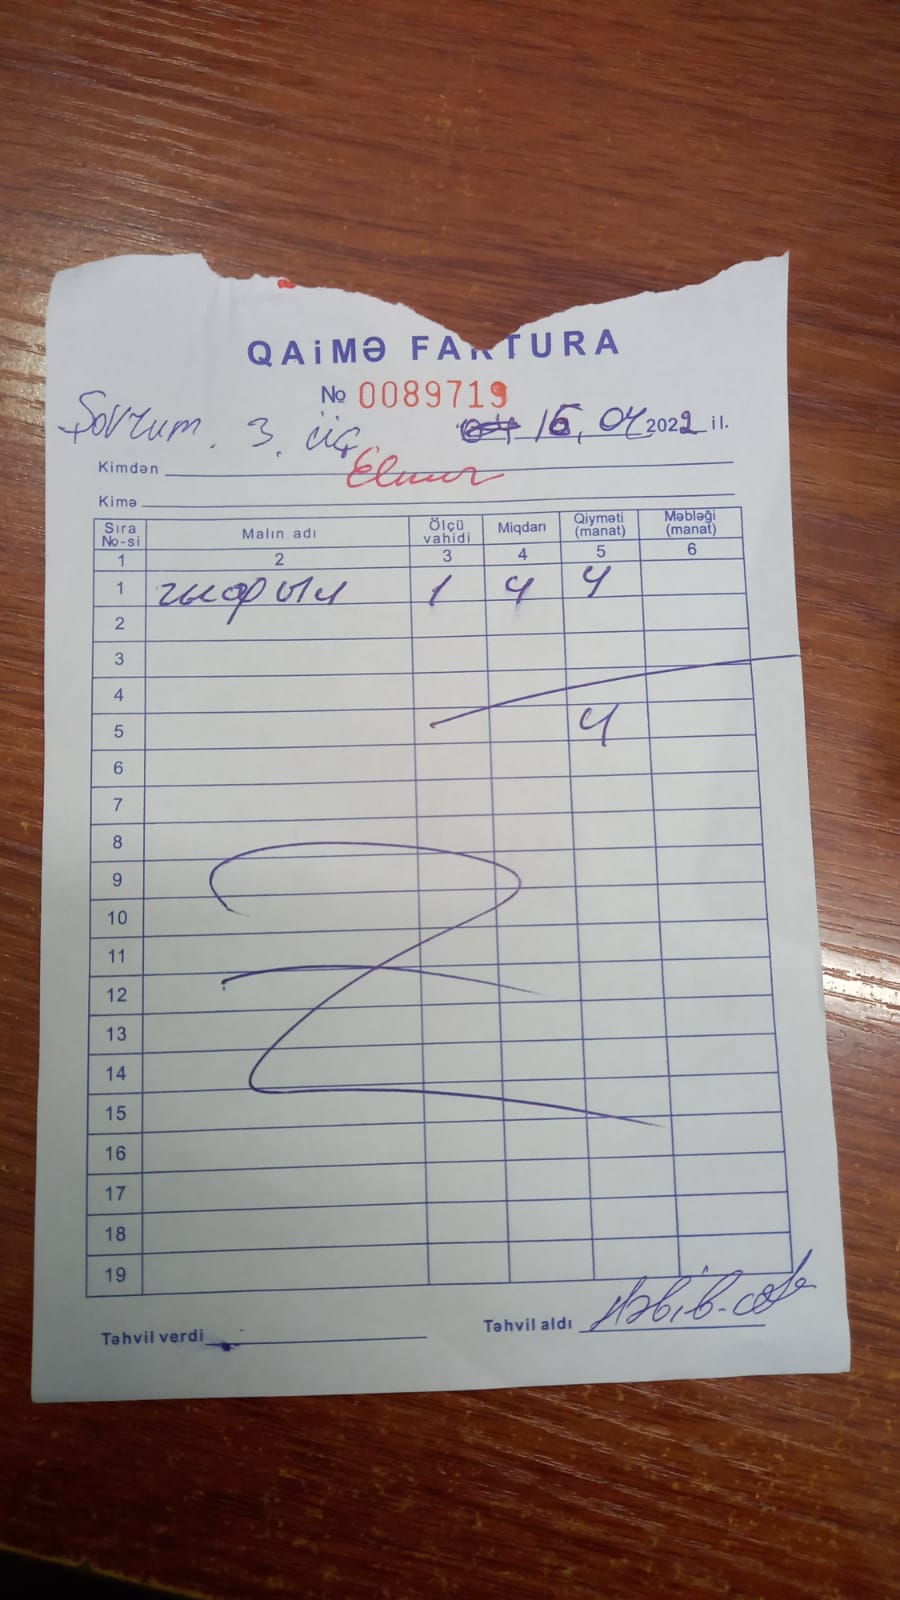 QAiMƏ FAKTURA
№ 0089719
Şovrum. 3. üç
16, 04 2022 il.
Kimdən
Elnur
Kimə
Sıra No-si Malın adı Ölçü vahidi Miqdarı Qiyməti (manat) Məbləği (manat)
1 2 3 4 5 6
1 1 4 4
2
3
4
5 4
6
7
8
9
10
11
12
13
14
15
16
17
18
19
Təhvil verdi Təhvil aldı